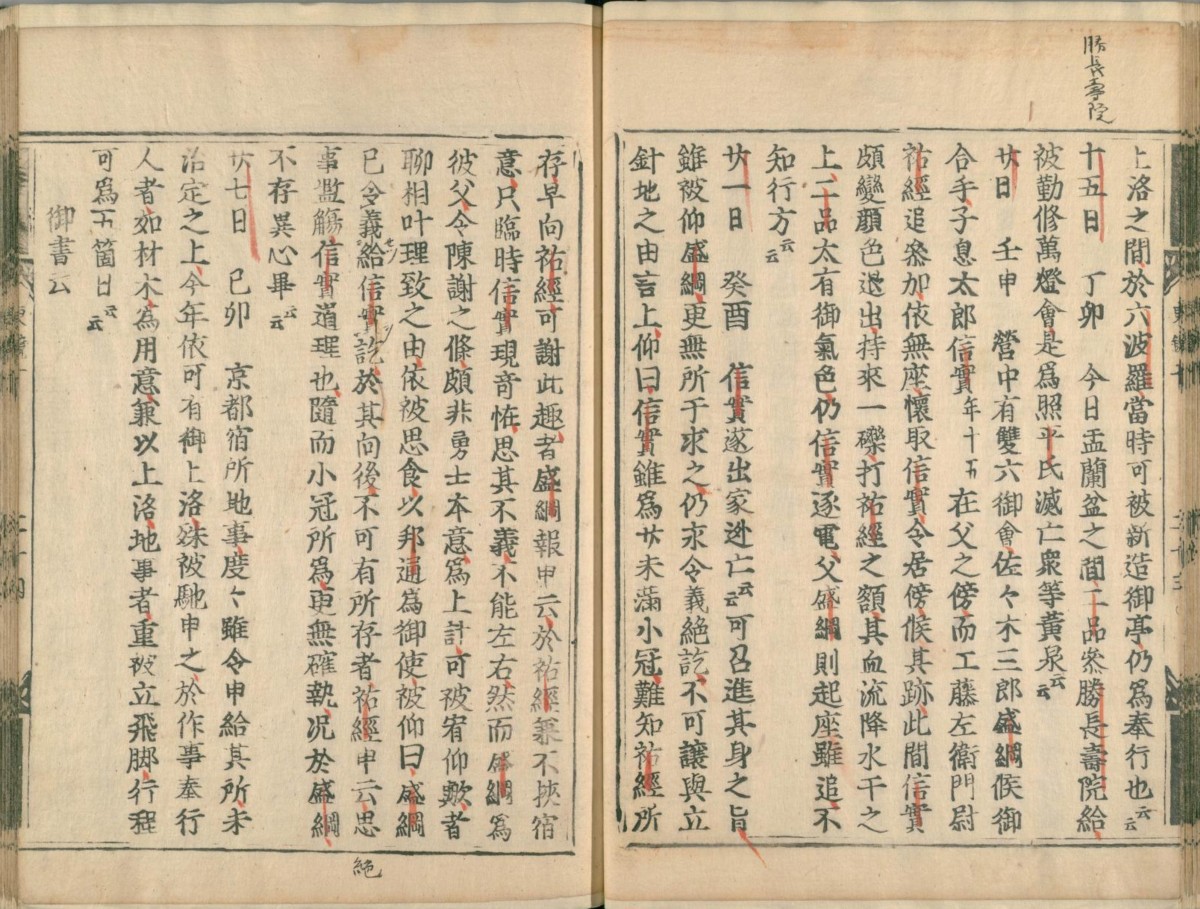 勝長壽院
上洛之間於六波羅當時可被新造御亭仍爲奉行也云云
十五日　丁卯　今日盂蘭盆之間二品參勝長壽院給
被勤修萬燈會是爲照平氏滅亡衆等黄泉云云
廿日　壬申　營中有雙六御會佐々木三郎盛綱候御
合手子息太郎信實年十五在父之傍而工藤左衛門尉
祐經追參加依無座懷取信實令居傍候其跡此間信實
頗變顔色退出持來一礫打祐經之額其血流降水干之
上二品太有御氣色仍信實逐電父盛綱則起座雖追不
知行方云云
廿一日　癸酉　信實遂出家逊亡云云可召進其身之旨
雖被仰盛綱更無所于求之仍永令義絶訖不可讓與立
針地之由言上仰曰信實雖爲廿未滿小冠難知祐經所
存早向祐經可謝此趣者盛綱報申云於祐經兼不挾宿
意只臨時信實現奇恠思其不義不能左右然而盛綱爲
彼父令陳謝之條頗非勇士本意爲上計可被宥仰歟者
聊相叶理致之由依被思食以邦通爲御使被仰曰盛綱
已令義給信實訖於其向後不可有所存者祐經申云思
事濫觴信實道理也隨而小冠所爲更無確執况於盛綱
不存異心畢云云
廿七日　己卯　京都宿所地事度々雖令申給其所未
治定之上今年依可有御上洛殊被馳申之於作事奉行
人者如材木爲用意兼以上洛地事者重被立飛脚行程
可爲五箇日云云
御書云
絶